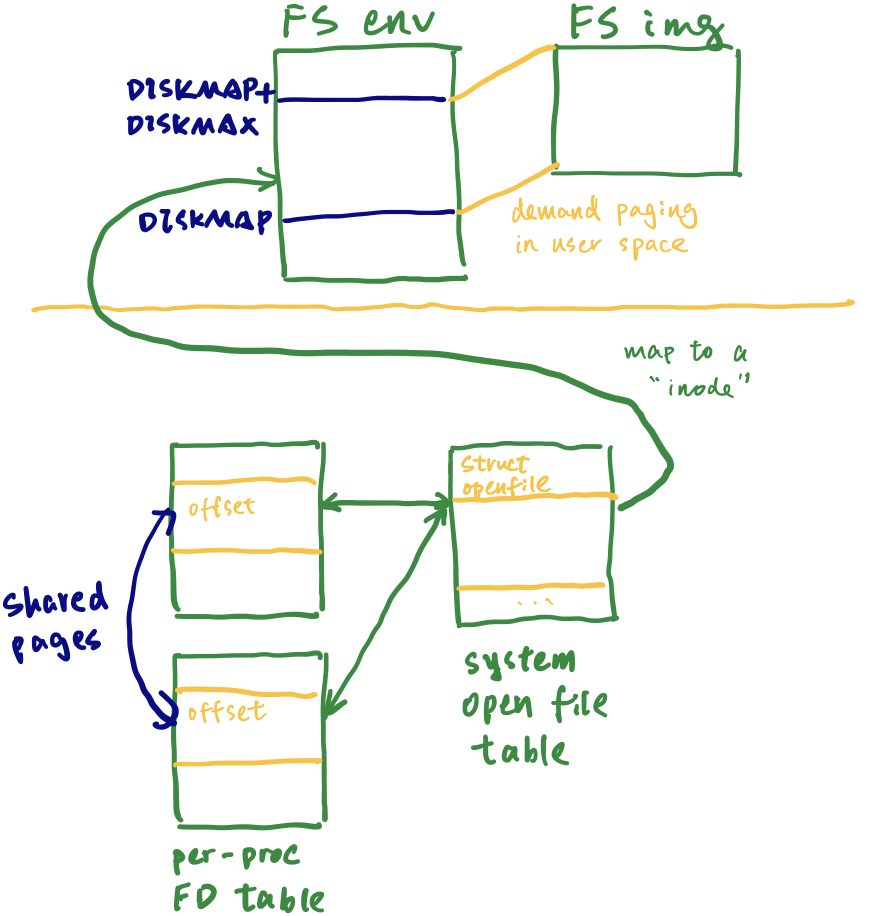 FS env
FS img
DISKMAP+
DISKMAX
DISKMAP
demand paging
in user space
map to a
"inode"
struct
openfile
offset
...
shared
pages
offset
system
open file
table
per-proc
FD table